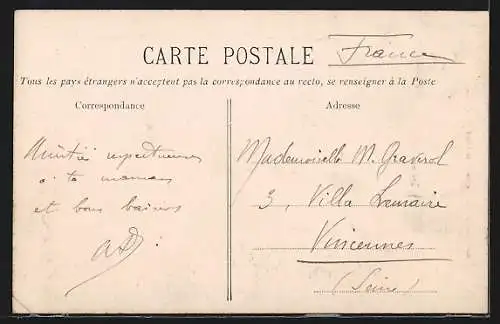 CARTE POSTALE
France
Tous les pays étrangers n'acceptent pas la correspondance au recto, se renseigner à la Poste
Correspondance
Amitié respectueuse
à ta maman
et bons baisers
Adresse
Mademoiselle M. Graverol
3, Villa Lemaire
Vincennes
(Seine)